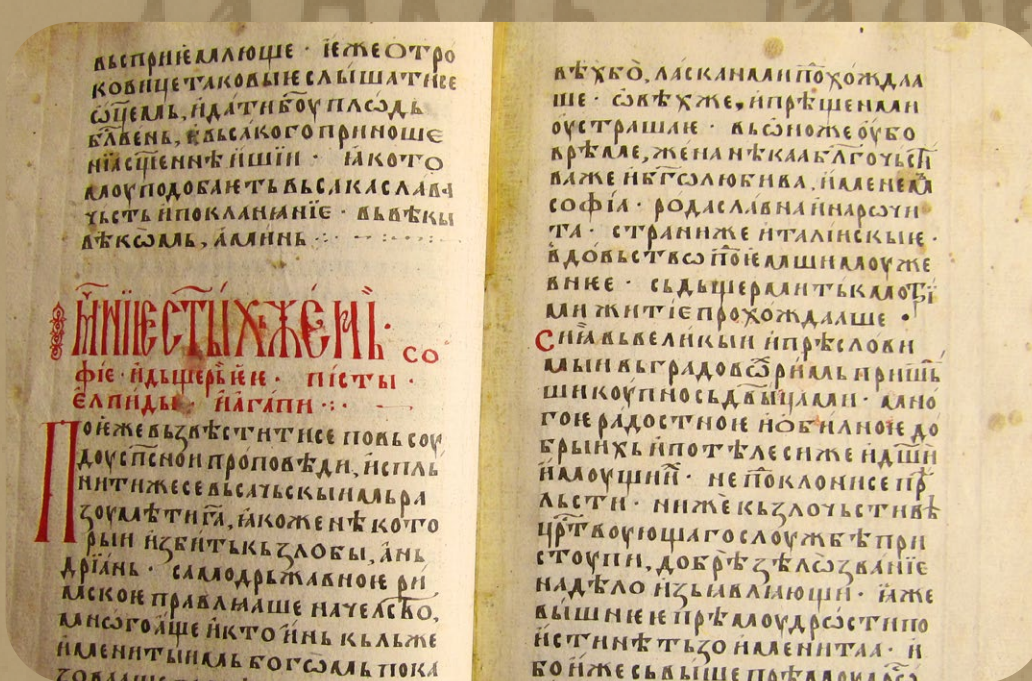 вьспріѥмлюще · ѥже ѻтро
ковице таковыѥ слышати се
ѡц҃емь, и дати боу плѡдь
бл҃вень, вьсакого приноше
нїа сщ҃еннѣишїи · ꙗко то
моу подобаѥть вьсака слава
чьсть и покланꙗнїе · вь вѣкы
вѣкѡмь, аминь
м҃чнїе ст҃ыхь жень · со
фіе · и дьщерь ѥѥ · пісты ·
елпиды · и агапи
Поѥже вьзвѣстити се повьсоу
доу сп҃сноѝ проповѣди, испль
нити же се вьсачьскыимь ра
зоумѣти га҃, ꙗкоже нѣ кото
рыи избитькь злобы, ань
дрїань · самодрьжавноѥ ри
мскоѥ правлꙗше начелство,
мнѡго аще и кто инь кь льже
именитыимь богѡмь пока
вѣх ѹбо, ласканми похождла
ше · ѡвѣх же, и прѣщенми
оустрашаѥ · вь ѡно же оубо
врѣме, жена нѣкаа бл҃гочьсти
ва же и бг҃олюбива, именем
софіа · рода славна и нарочи
та · страни же италінскыѥ ·
вдовьство по ѥмши моуже
внѥе · сь дьщерми тькмо трї
ми житіе прохождааше ·
Сиа вь великыи и прѣслови
мыи вь градовѡ римь пришь
ши коупно сь двц҃ами · мно
гоѥ радостноѥ и обилноѥ до
брыихь и по тѣлеси же и дш҃и
имоущии · не поклони се прѣ
льсти · ниже кь злочьстивѣ
цр҃твоующаго слоужбѣ при
стоупи, добрѣ зѣлѡ званїе
на дѣло изьꙗвлꙗющи · ꙗже
вышнѥѥ прѣмоудрости по
истинѣ тьзоименитаа · и
бо иже сьвыше прѣмоудрость